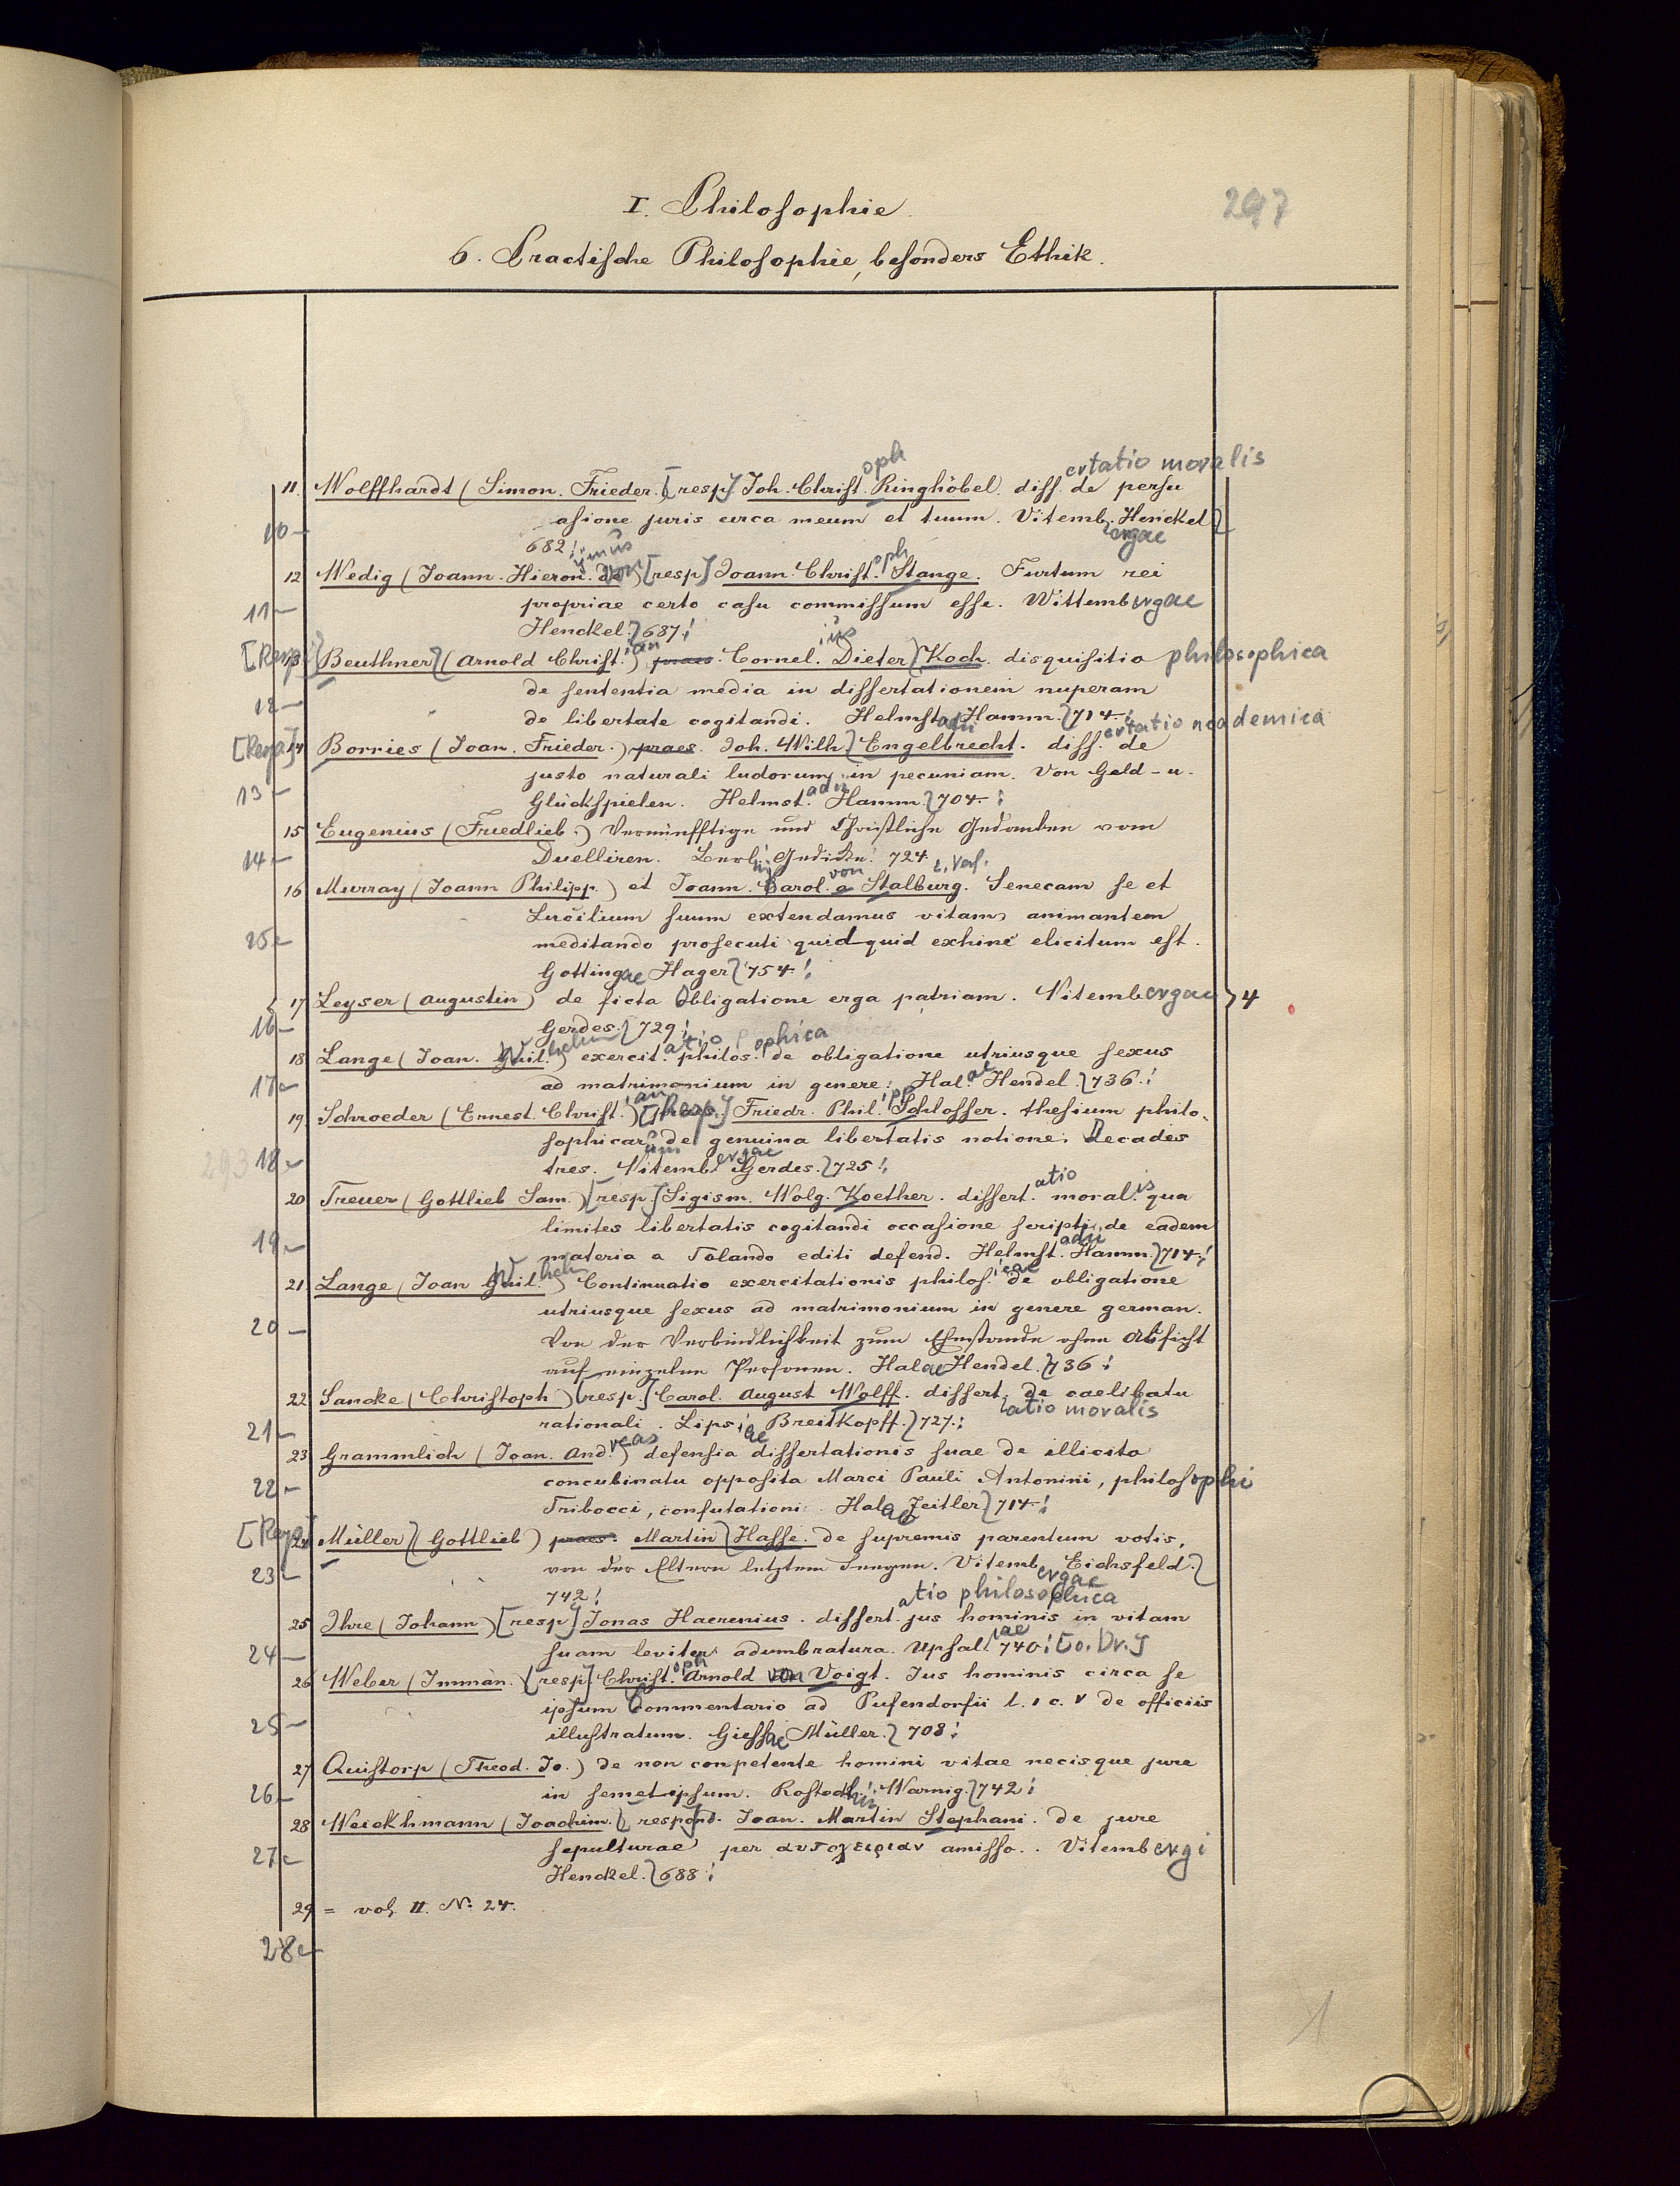 297
I. Philosophie.
6. Practische Philosophie, besonders Ethik.
oph ertatio moralis
11. Wolffhardt (Simon. Frieder.) [resp] Joh. Christ. Ringhöbel. diss. de persu
10 asione juris circa meum et tuum. Vitemb. Henckel
682! ergae
ymus von oph
12 Wedig (Joann. Hieron. de) [resp] Joann. Christ. Stange. Furtum rei
11 propriae certo casu commissum esse. Wittembergae
Henckel. 687!
ian ius
[Resp.] 13 Beuthner (Arnold Christ.) praes. Cornel. Dieter Koch. disquisitio philosophica
de sententia media in dissertationem nuperam
12 de libertate cogitandi. Helmstadii Hamm. 714!
ertatio academica
[Resp.] 14 Borries (Joan. Frieder.) praes. Joh. Wilh. Engelbrecht. diss. de
justo naturali ludorum in pecuniam. Von Geld- u.
13 Glückspielen. Helmst.adii Hamm. 704!
15 Eugenius (Friedlieb.) Vernünfftige und Christliche Gedanken vom
14 Duelliren. Berl. Gedicke. 724
von
16 Murray (Joann Philipp.) et Joann. Carol. a Stalburg. Senecam se et
Lucilium suum extendamus vitam animantem
25 meditando prosecuti quidquid exhinc elicitum est.
Gottingae Hager 754!
17 Leyser (Augustin) de ficta Obligatione erga patriam. Vitembergae 4
16 Gerdes. 729!
Wilhelm atio ophica
18 Lange (Joan. Guil.) exercit. philos. de obligatione utriusque sexus
17 ad matrimonium in genere. Hal.ae Hendel. 736!
ian ipp
19 Schroeder (Ernest. Christ.) [Resp.] Friedr. Phil. Schlosser. thesium philo-
sophicarum de genuina libertatis notione. Decades
293 18 tres. Vitemb.ergae Gerdes. 725!
atio is
20 Treuer (Gottlieb Sam.) [resp] Sigism. Wolg. Koether. dissert. moral. qua
limites libertatis cogitandi occasione scripti de eadem
19 materia a Tolando editi defend. Helmst.adii Hamm. 714!
21 Lange (Joan Guil.) Continuatio exercitationis philos.icae de obligatione
utriusque sexus ad matrimonium in genere german.
20 Von der Verbindlichkeit zum Ehestande ohne Absicht
auf einzelne Personen. Halae Hendel. 736!
22 Sancke (Christoph) [resp.] Carol. August Wolff. dissert. de caelibatu
atio moralis
21 rationali. Lipsiae Breitkopff. 727!
23 Grammlich (Joan. And.reas) defensia dissertationis suae de illicito
22 concubinatu opposita Marci Pauli Antonini, philosophi
Tribocci, confutationi. Halae Zeitler 714!
[Resp.] 24 Müller (Gottlieb) praes. Martin Hasse. de supremis parentum votis,
23 von der Eltern letztem Seegen. Vitembergae Eichsfeld.
742!
atio philosophica
25 Ihre (Johann) [resp] Jonas Haerenius. dissert. jus hominis in vitam
24 suam leviter adumbratura. Upsal.iae 740! [o. Dr.]
26 Weber (Imman.) [resp] Christ.oph Arnold von Voigt. Jus hominis circa se
ipsum Commentario ad Pufendorfii l. 1 c. V de officiis
25 illustratum. Giessae Müller. 708!
27 Quistorp (Theod. Jo.) de non conpetente homini vitae necisque jure
26 in semetipsum. Rostochii Warnig. 742!
28 Weickhmann (Joachim.) respond. Joan. Martin Stephani. de jure
27 sepulturae per αυτοχειριαν amisso. Vitembergi
Henckel. 688!
29 = vol. II. No. 24.
28
1